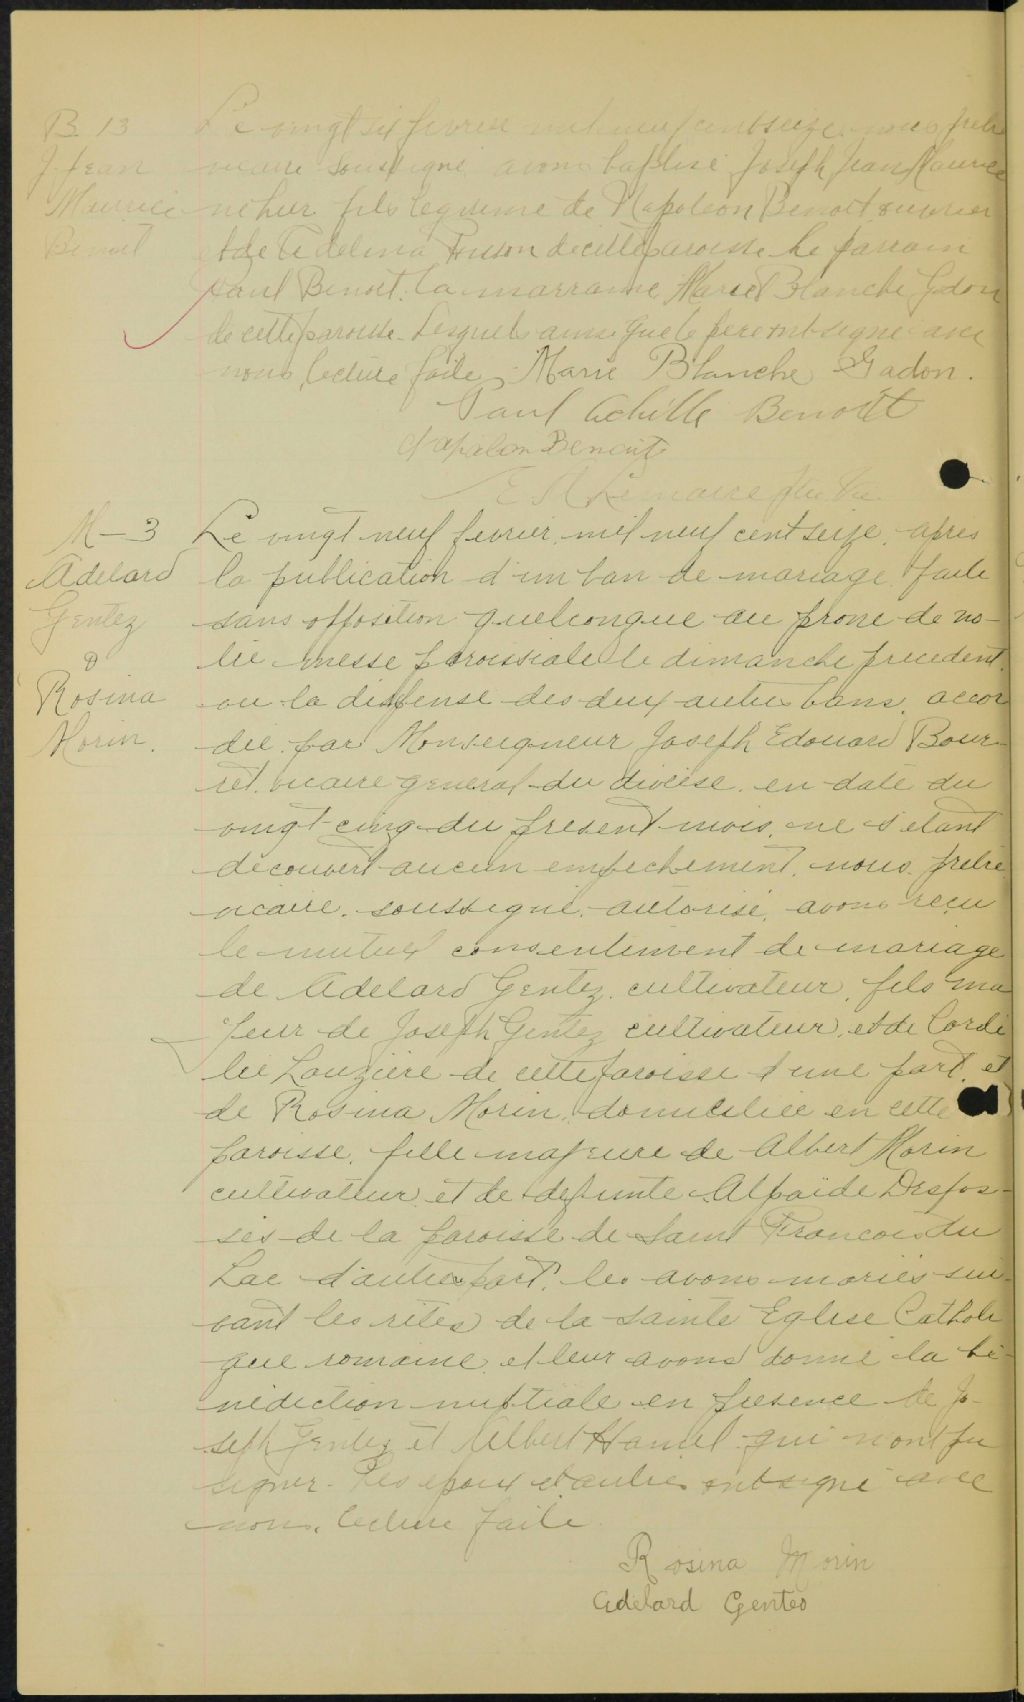 B 13
J. Jean
Maurice
Benoit
Le vingt six fevrier mil neuf cent seize, nous pretre
vicaire soussigné avons baptisé Joseph Jean Maurice
né hier fils legitime de Napoleon Benoit ouvrier
et de Edelina de cette paroisse Le parrain
Paul Benoit. la marraine Marie Blanche Gadon
de cette paroisse. Lesquels ainsi que le pere ont signé avec
nous, lecture faite. Marie Blanche Gadon.
Paul Achille Benoit
Napoleon Benoit
Lemaire Ptre Vic.
M-3
Adelard
Gentez
&
Rosina
Morin.
Le vingt neuf fevrier, mil neuf cent seize, apres
la publication d'un ban de mariage faite
sans opposition quelconque au prone de no-
tre messe paroissiale le dimanche precedent,
vu la dispense des deux autres bans, accor
dée par Monseigneur Joseph Edouard Bour-
ret, vicaire general du diocèse, en date du
vingt-cinq du present mois, ne s'etant
découvert aucun empechement, nous, pretre
vicaire, soussigné, autorisé, avons reçu
le mutuel consentement de mariage
de Adelard Gentez, cultivateur, fils ma
jeur de Joseph Gentez cultivateur, et de Cordé
lie Lauzière de cette paroisse d'une part, et
de Rosina Morin, domiciliée en cette
paroisse, fille majeure de Albert Morin
cultivateur et de defunte Alpaïde Despos-
sés de la paroisse de Saint François du
Lac d'autre part, les avons mariés sui-
vant les rites de la sainte Eglise Catholi
que romaine, et leur avons donné la bé-
nédiction nuptiale en presence de Jo-
seph Gentez et Albert Hamel qui n'ont pu
signer. Les epoux et autres ont signé avec
nous, lecture faite.
Rosina Morin
Adelard Gentes